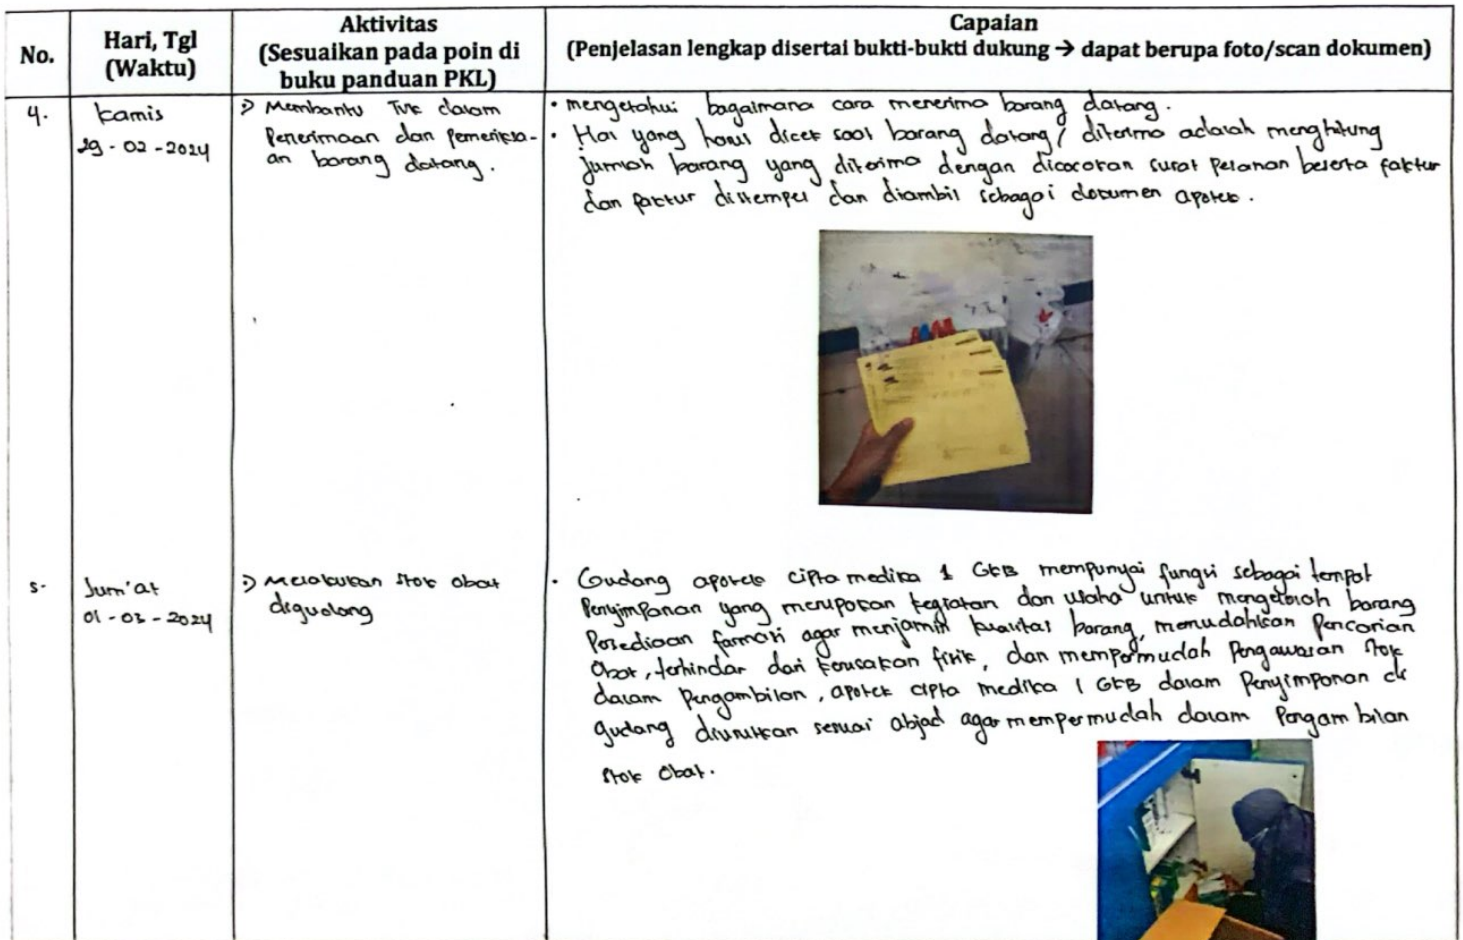 No.
Hari, Tgl
(Waktu)
Aktivitas
(Sesuaikan pada poin di
buku panduan PKL)
Capaian
(Penjelasan lengkap disertai bukti-bukti dukung → dapat berupa foto/scan dokumen)
4.
Kamis
29-02-2024
Membantu TVK dalam
Penerimaan dan pemeriksa-
an barang datang.
• mengetahui bagaimana cara menerima barang datang.
• Hal yang harus dicek saat barang datang/ diterima adalah menghitung
jumlah barang yang diterima dengan dicocokan surat pesanan beserta faktur
dan faktur distempel dan diambil sebagai dokumen apotek.
5.
Jum'at
01-03-2024
Melakukan stok obat
digudang
• Gudang apotek cipta medika 1 GKB mempunyai fungsi sebagai tempat
Penyimpanan yang merupakan kegiatan dan usaha untuk barang
Persediaan farmasi agar menjamin kualitas barang, memudahkan Pencarian
Obat, terhindar dari kerusakan fisik, dan mempermudah Pengawasan stok
dalam Pengambilan, apotek cipta medika 1 GKB dalam Penyimponan di
gudang diurutkan sesuai abjad agar mempermudah dalam Pengambilan
stok Obat.